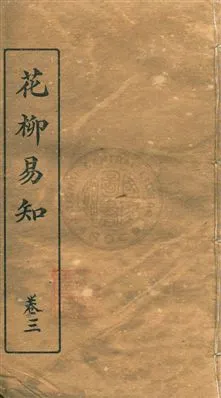 花柳易知
卷三